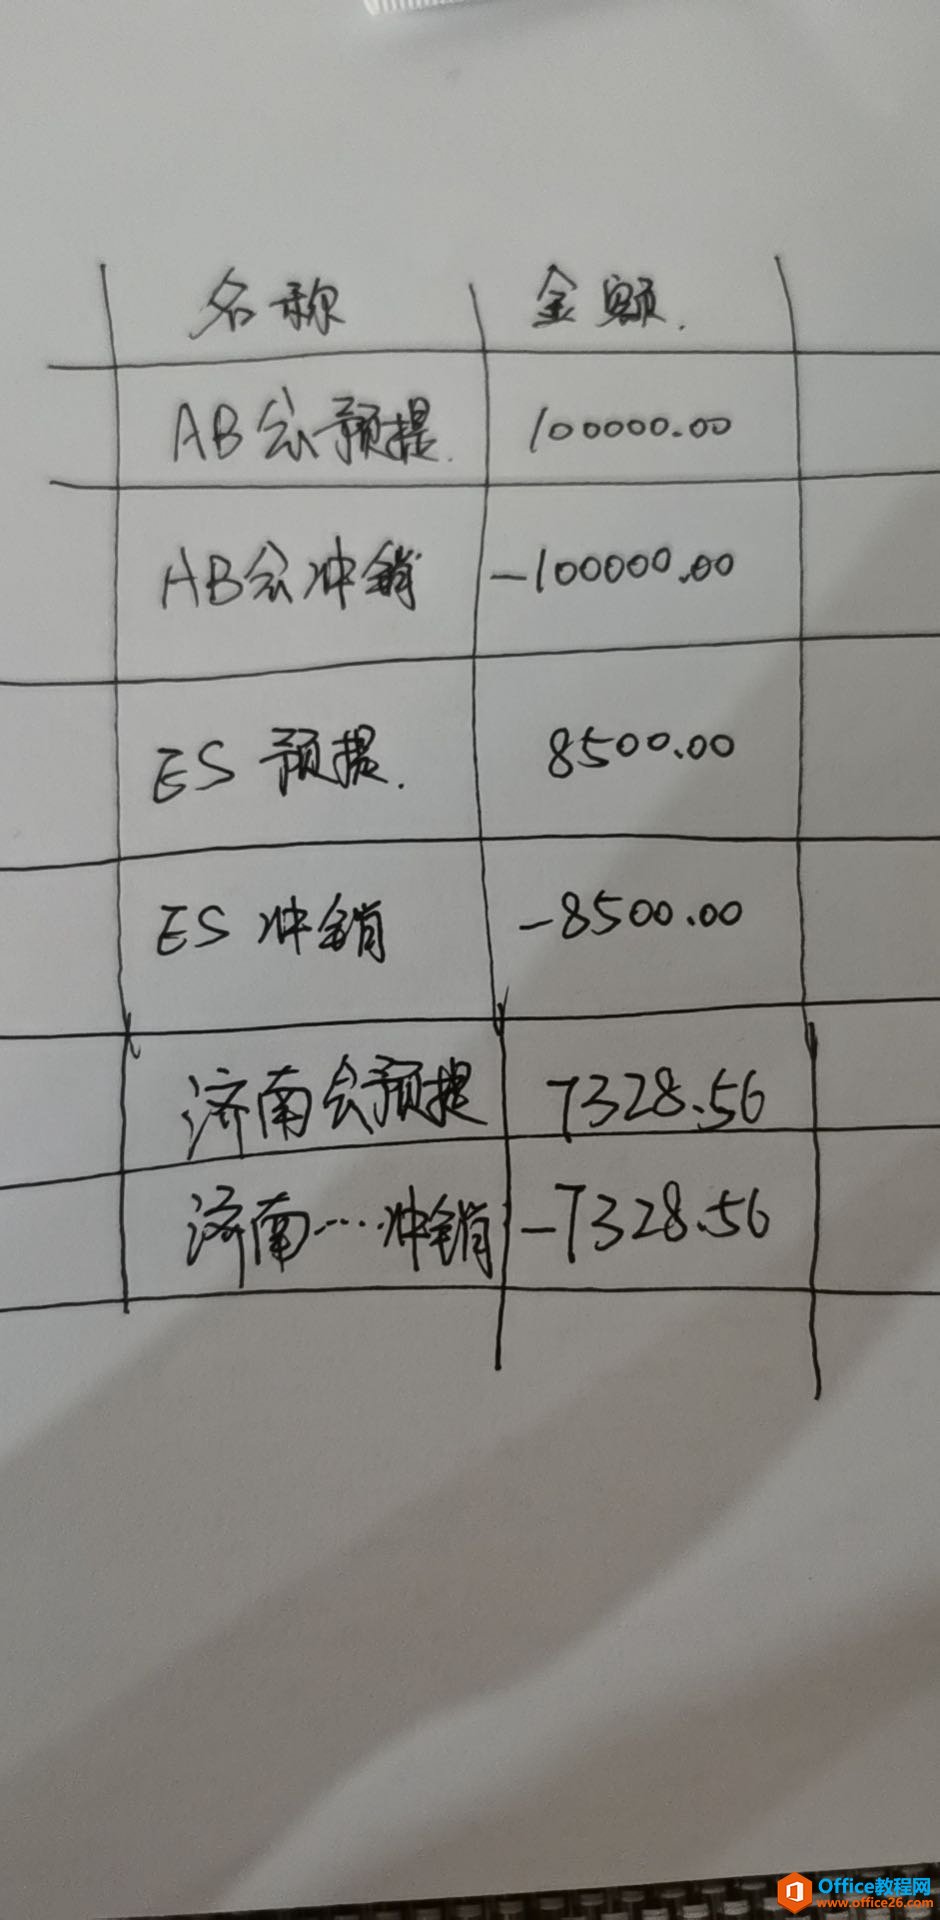 名称 金额.
AB会预提. 100000.00
AB会冲销 -100000.00
ES 预提. 8500.00
ES 冲销 -8500.00
济南会预提 7328.56
济南……冲销 -7328.56
Office教程网
www.office26.com